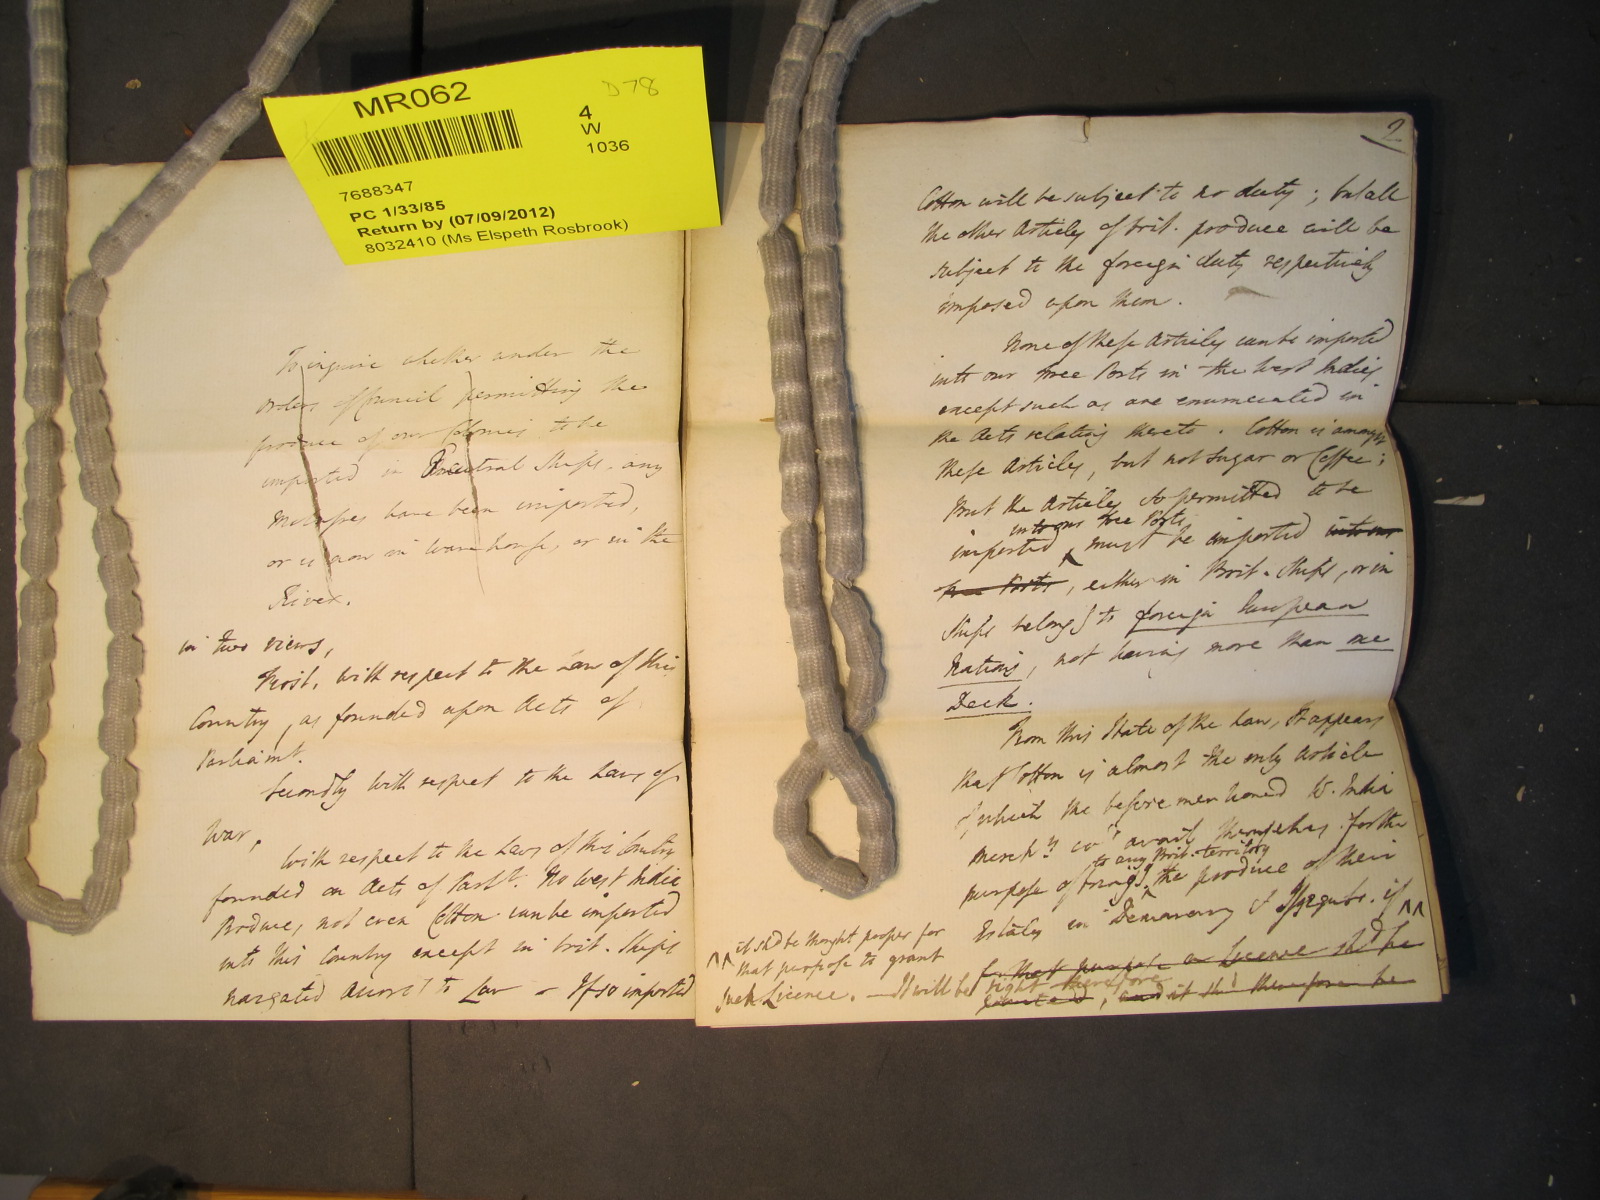 MR062
D78
4
W
1036
7688347
PC 1/33/85
Return by (07/09/2012)
8032410 (Ms Elspeth Rosbrook)
To inquire whether under the
orders of Council permitting the
produce of our Colonies to be
imported in Neutral Ships, any
Molasses have been imported,
or is now in warehouse, or in the
River.
in two views,
First, with respect to the Law of this
Country, as founded upon Acts of
Parliamt.
Secondly with respect to the Laws of
War,
With respect to the Laws of this Country
founded on Acts of Parlt. No West India
Produce, not even Cotton can be imported
into this Country except in brit. Ships
navigated accord to Law - If so imported
2
Cotton will be subject to no duty; but all
the other Articles of brit. produce will be
subject to the foreign duty respectively
imposed upon them.
None of these Articles can be imported
into our Free Ports in the West Indies
except such as are enumerated in
the Acts relating thereto. Cotton is amongst
these Articles, but not Sugar or Coffee;
But the Articles so permitted to be
into our Free Ports
imported must be imported into our
Free Ports, either in Brit. Ships, or in
Ships belong to foreign European
Nations, not having more than one
Deck.
From this State of the Law, It appears
that Cotton is almost the only Article
which the before mentioned W. India
Merch ts co d avail themselves for the
to any Brit. territory
purpose of bring g the produce of their
Estates in Demerary & Issequibo. if
it shd be thought proper for
that purpose to grant
such Licence. - It will be right therefore
for that purpose a Licence shd be
granted, and it shd therefore be